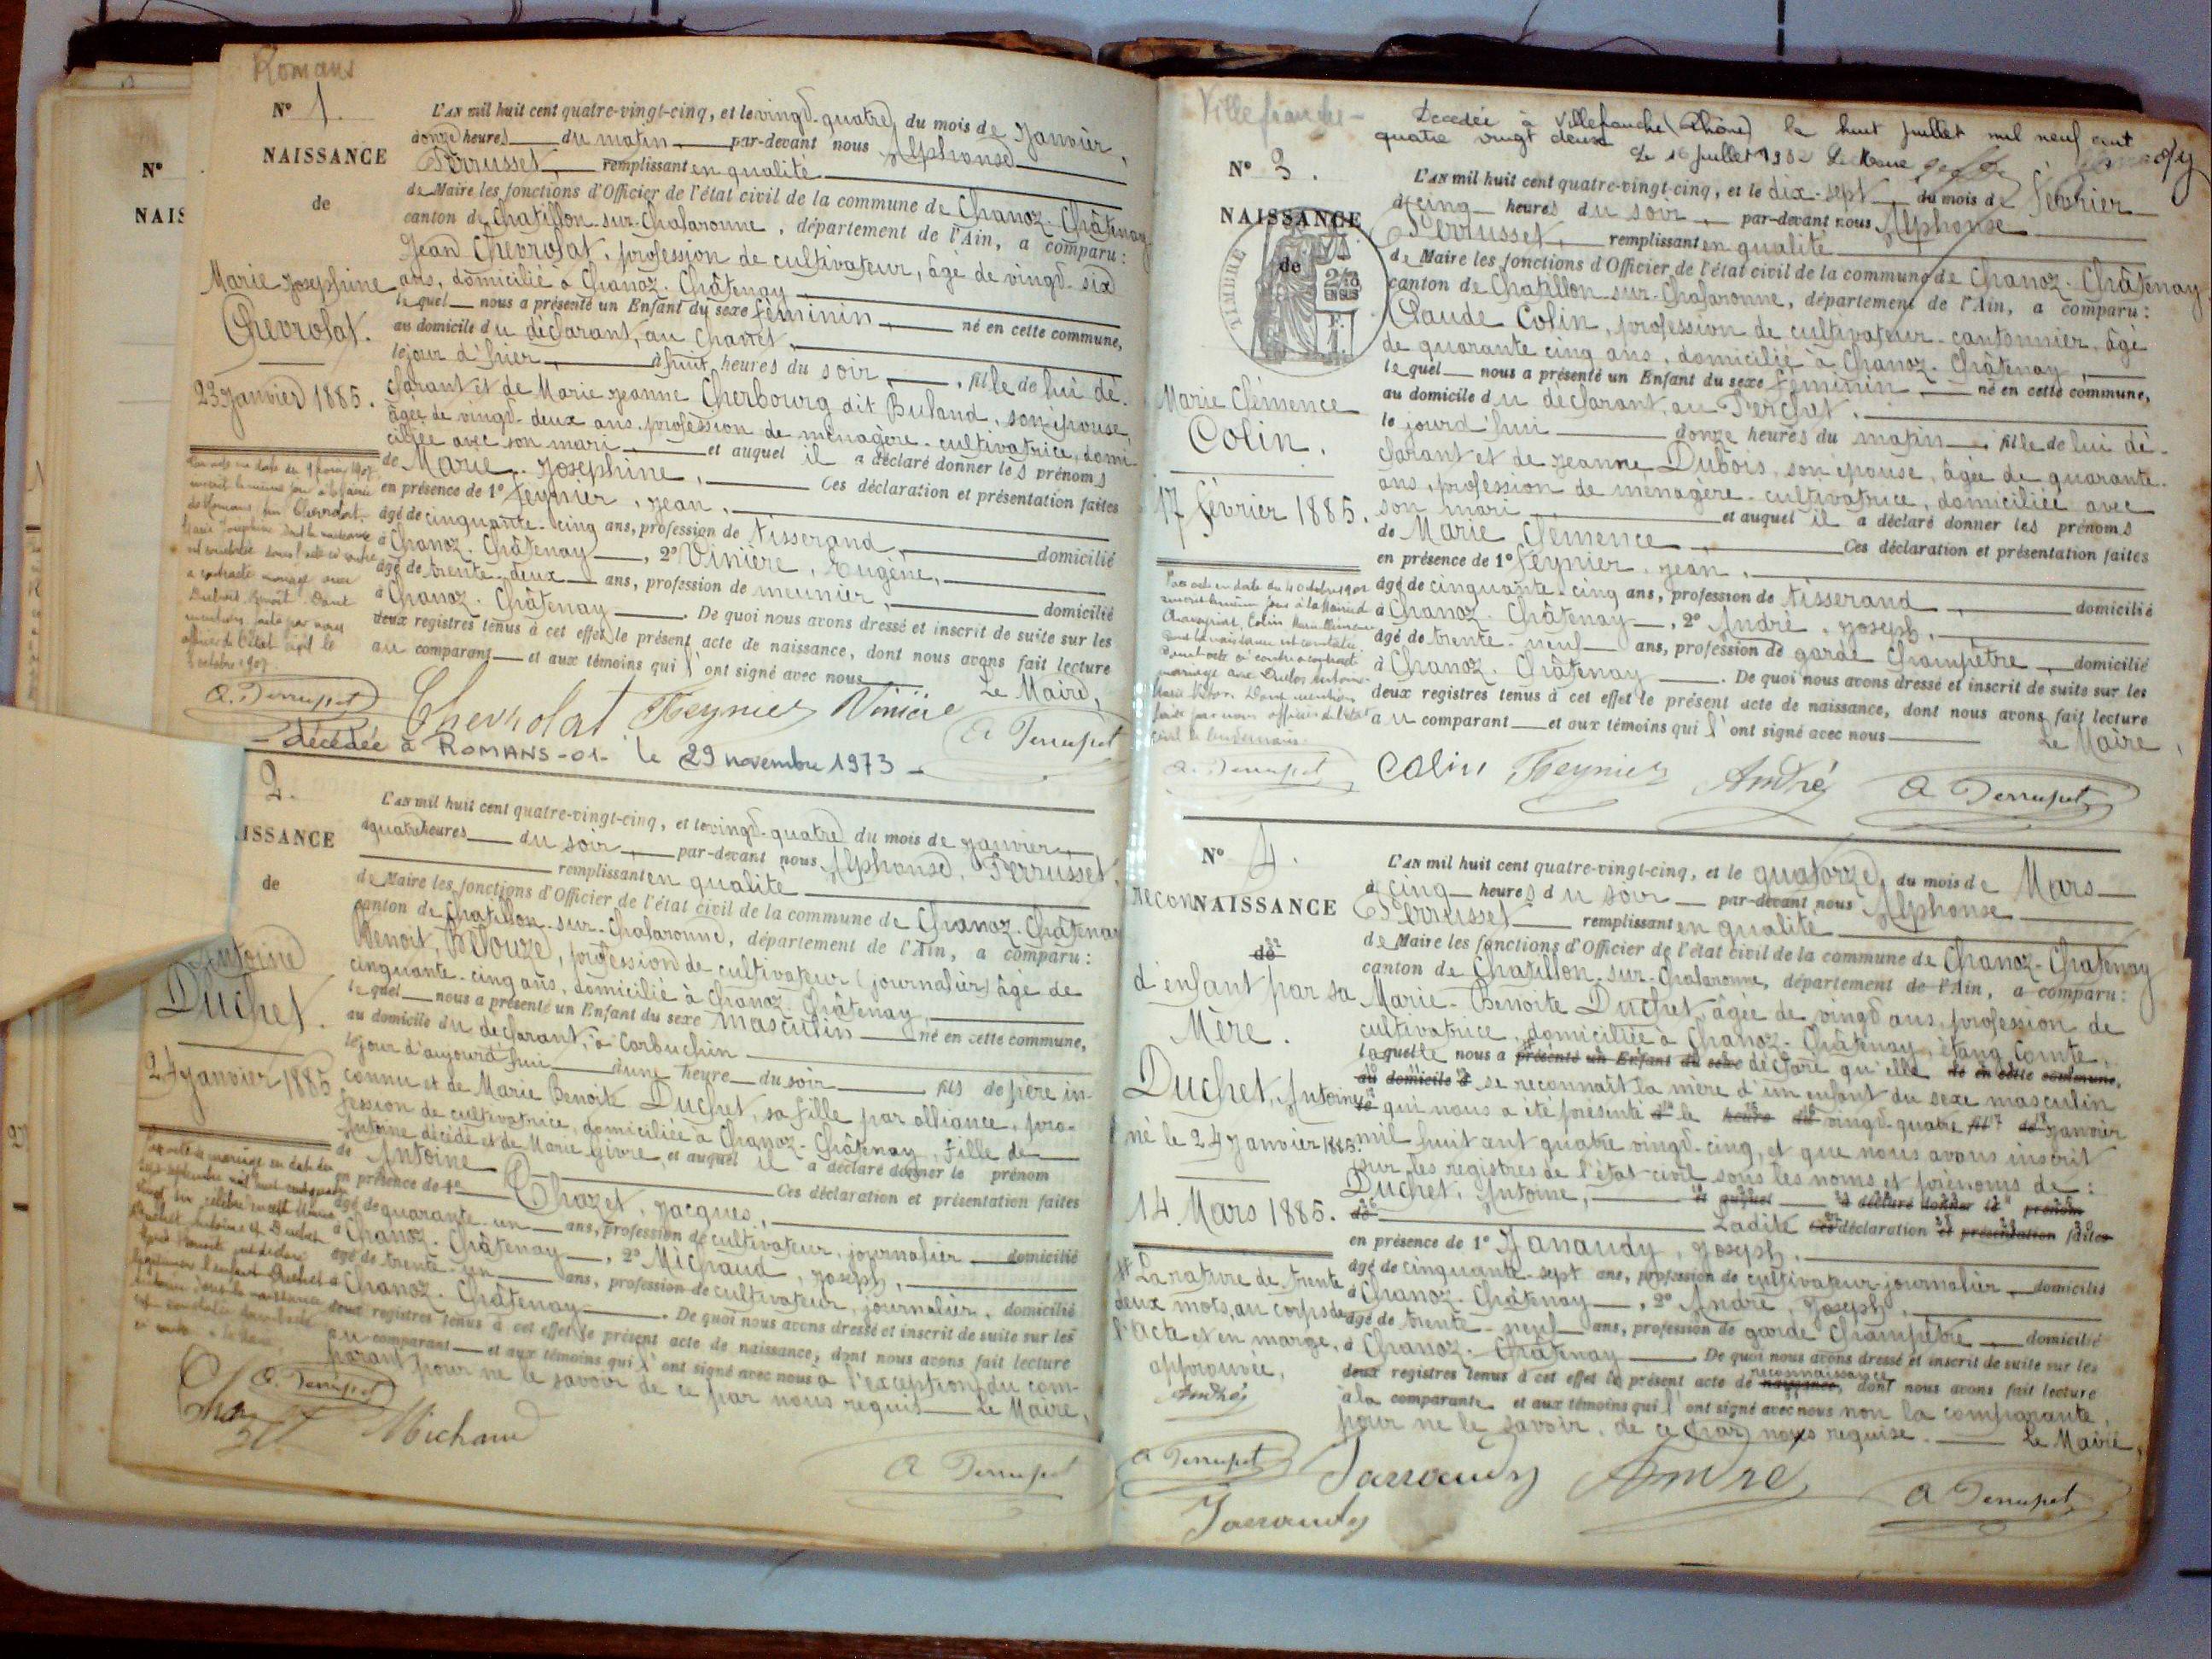 Romans
N° 1.
NAISSANCE
de
Marie-Josephine
Chevrolat.
23 Janvier 1885.
L'AN mil huit cent quatre-vingt-cinq, et le vingt-quatre du mois de Janvier,
à onze heures du matin, par-devant nous Alphonse
Perrusset, remplissant en qualité
de Maire les fonctions d'Officier de l'état civil de la commune de Chanoz-Châtenay
canton de Chatillon-sur-Chalaronne, département de l'Ain, a comparu:
Jean Chevrolat, profession de cultivateur, âgé de vingt-six
ans, domicilié à Chanoz-Châtenay
lequel nous a présenté un Enfant du sexe féminin, né en cette commune,
au domicile du déclarant, au
le jour d'hier, à huit heures du soir, fille de lui dé-
clarant et de Marie Jeanne Cherbourg dit Buland, son épouse,
âgée de vingt-deux ans, profession de ménagère-cultivatrice, domi-
ciliée avec son mari, et auquel il a déclaré donner les prénoms
de Marie-Josephine, Ces déclaration et présentation faites
en présence de 1° Feynier, Jean,
âgé de cinquante-cinq ans, profession de tisserand, domicilié
à Chanoz-Châtenay, 2° Vinière, Eugène,
âgé de trente-deux ans, profession de meunier, domicilié
à Chanoz-Châtenay. De quoi nous avons dressé et inscrit de suite sur les
deux registres tenus à cet effet le présent acte de naissance, dont nous avons fait lecture
au comparant et aux témoins qui l'ont signé avec nous
Le Maire,
Chevrolat Feynier Vinière
A Perrusset
- décédée à ROMANS-01- le 29 novembre 1973 -
2.
ISSANCE
de
Antoine
Duchet.
24 Janvier 1885
L'AN mil huit cent quatre-vingt-cinq, et le vingt-quatre du mois de Janvier,
à quatre heures du soir, par-devant nous Alphonse, Perrusset,
remplissant en qualité
de Maire les fonctions d'Officier de l'état civil de la commune de Chanoz-Châtenay
canton de Chatillon-sur-Chalaronne, département de l'Ain, a comparu:
Benoit, Belouze, profession de cultivateur (journalier) âgé de
cinquante-cinq ans, domicilié à Chanoz-Châtenay,
lequel nous a présenté un Enfant du sexe masculin né en cette commune,
au domicile du déclarant, à Corbuchin
le jour d'aujourd'hui à une heure du soir fils de père in-
connu et de Marie Benoite Duchet, sa fille par alliance, pro-
fession de cultivatrice, domiciliée à Chanoz-Châtenay, fille de
Antoine décédé et de Marie Givre, et auquel il a déclaré donner le prénom
de Antoine Ces déclaration et présentation faites
en présence de 1° Chazet, Jacques,
âgé de quarante-un ans, profession de cultivateur, journalier, domicilié
à Chanoz-Châtenay, 2° Michaud, Joseph,
âgé de trente-un ans, profession de cultivateur, journalier, domicilié
à Chanoz-Châtenay. De quoi nous avons dressé et inscrit de suite sur les
deux registres tenus à cet effet le présent acte de naissance, dont nous avons fait lecture
au comparant et aux témoins qui l'ont signé avec nous à l'exception du com-
parant pour ne le savoir de ce par nous requis Le Maire,
A. Perrusset
Michaud
A Perrusset
Villefranche-
Decedée à Villefranche (Rhône) le huit juillet mil neuf cent
quatre vingt deux Le 16 juillet 1982 Le Maire
N° 3.
NAISSANCE
de
Marie Clémence
Colin.
17 février 1885.
L'AN mil huit cent quatre-vingt-cinq, et le dix-sept du mois de février
à cinq heures du soir, par-devant nous Alphonse
Perrusset, remplissant en qualité
de Maire les fonctions d'Officier de l'état civil de la commune de Chanoz-Châtenay
canton de Chatillon-sur-Chalaronne, département de l'Ain, a comparu:
Claude Colin, profession de cultivateur-cantonnier, âgé
de quarante cinq ans, domicilié à Chanoz-Châtenay,
lequel nous a présenté un Enfant du sexe féminin, né en cette commune,
au domicile du déclarant, au Perchet,
le jourd'hui donze heures du matin, fille de lui dé-
clarant et de Jeanne Dubois, son épouse, âgée de quarante
ans, profession de ménagère-cultivatrice, domiciliée avec
son mari et auquel il a déclaré donner les prénoms
de Marie Clémence, Ces déclaration et présentation faites
en présence de 1° Feynier, Jean,
âgé de cinquante-cinq ans, profession de tisserand, domicilié
à Chanoz-Châtenay, 2° André, Joseph,
âgé de trente-neuf ans, profession de garde champêtre, domicilié
à Chanoz-Châtenay. De quoi nous avons dressé et inscrit de suite sur les
deux registres tenus à cet effet le présent acte de naissance, dont nous avons fait lecture
au comparant et aux témoins qui l'ont signé avec nous Le Maire,
A. Perrusset Colin Feynier André A Perrusset
N° 4.
reconNAISSANCE
de
d'enfant par sa
Mère.
Duchet, Antoine
né le 24 Janvier 1885.
14 Mars 1885.
La rature de trente
deux mots, au corps de
l'acte et en marge,
approuvée,
André
L'AN mil huit cent quatre-vingt-cinq, et le quatorze du mois de Mars
à cinq heures du soir par-devant nous Alphonse
Perrusset remplissant en qualité
de Maire les fonctions d'Officier de l'état civil de la commune de Chanoz-Chatenay
canton de Chatillon-sur-Chalaronne, département de l'Ain, a comparu:
Marie-Benoite Duchet, âgée de vingt ans, profession de
cultivatrice, domiciliée à Chanoz-Châtenay, étang Comte,
laquelle nous a présenté un Enfant du sexe déclaré qu'elle né en cette commune,
au domicile d se reconnaît la mère d'un enfant du sexe masculin
qui nous a été présenté le heure du vingt-quatre fil de Janvier
mil huit cent quatre vingt-cinq, et que nous avons inscrit
sur les registres de l'état civil sous les noms et prénoms de:
Duchet, Antoine, et auquel a déclaré donner le prénom
de Ladite Ces déclaration et présentation faites
en présence de 1° Janaudy, Joseph,
âgé de cinquante-sept ans, profession de cultivateur-journalier, domicilié
à Chanoz-Châtenay, 2° André, Joseph,
âgé de trente-neuf ans, profession de garde champêtre, domicilié
à Chanoz-Châtenay. De quoi nous avons dressé et inscrit de suite sur les
deux registres tenus à cet effet le présent acte de naissance, reconnaissance dont nous avons fait lecture
à la comparante et aux témoins qui l'ont signé avec nous non la comparante,
pour ne le savoir, de ce par nous requise. Le Maire,
A Perrusset Janaudy André A Perrusset
Janaudy